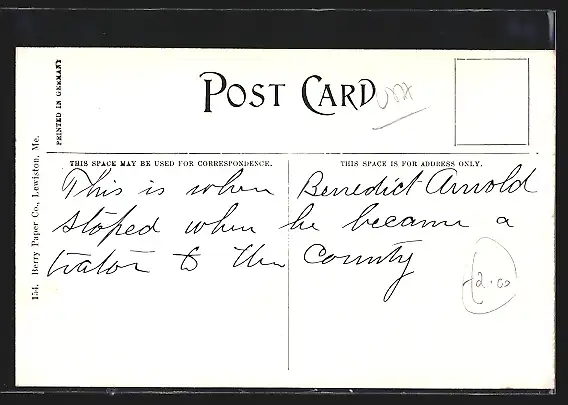 POST CARD
USA
PRINTED IN GERMANY
THIS SPACE MAY BE USED FOR CORRESPONDENCE.
THIS SPACE IS FOR ADDRESS ONLY.
This is when Benedict Arnold
stoped when he became a
trator to the County
2.00
154. Berry Paper Co., Lewiston, Me.